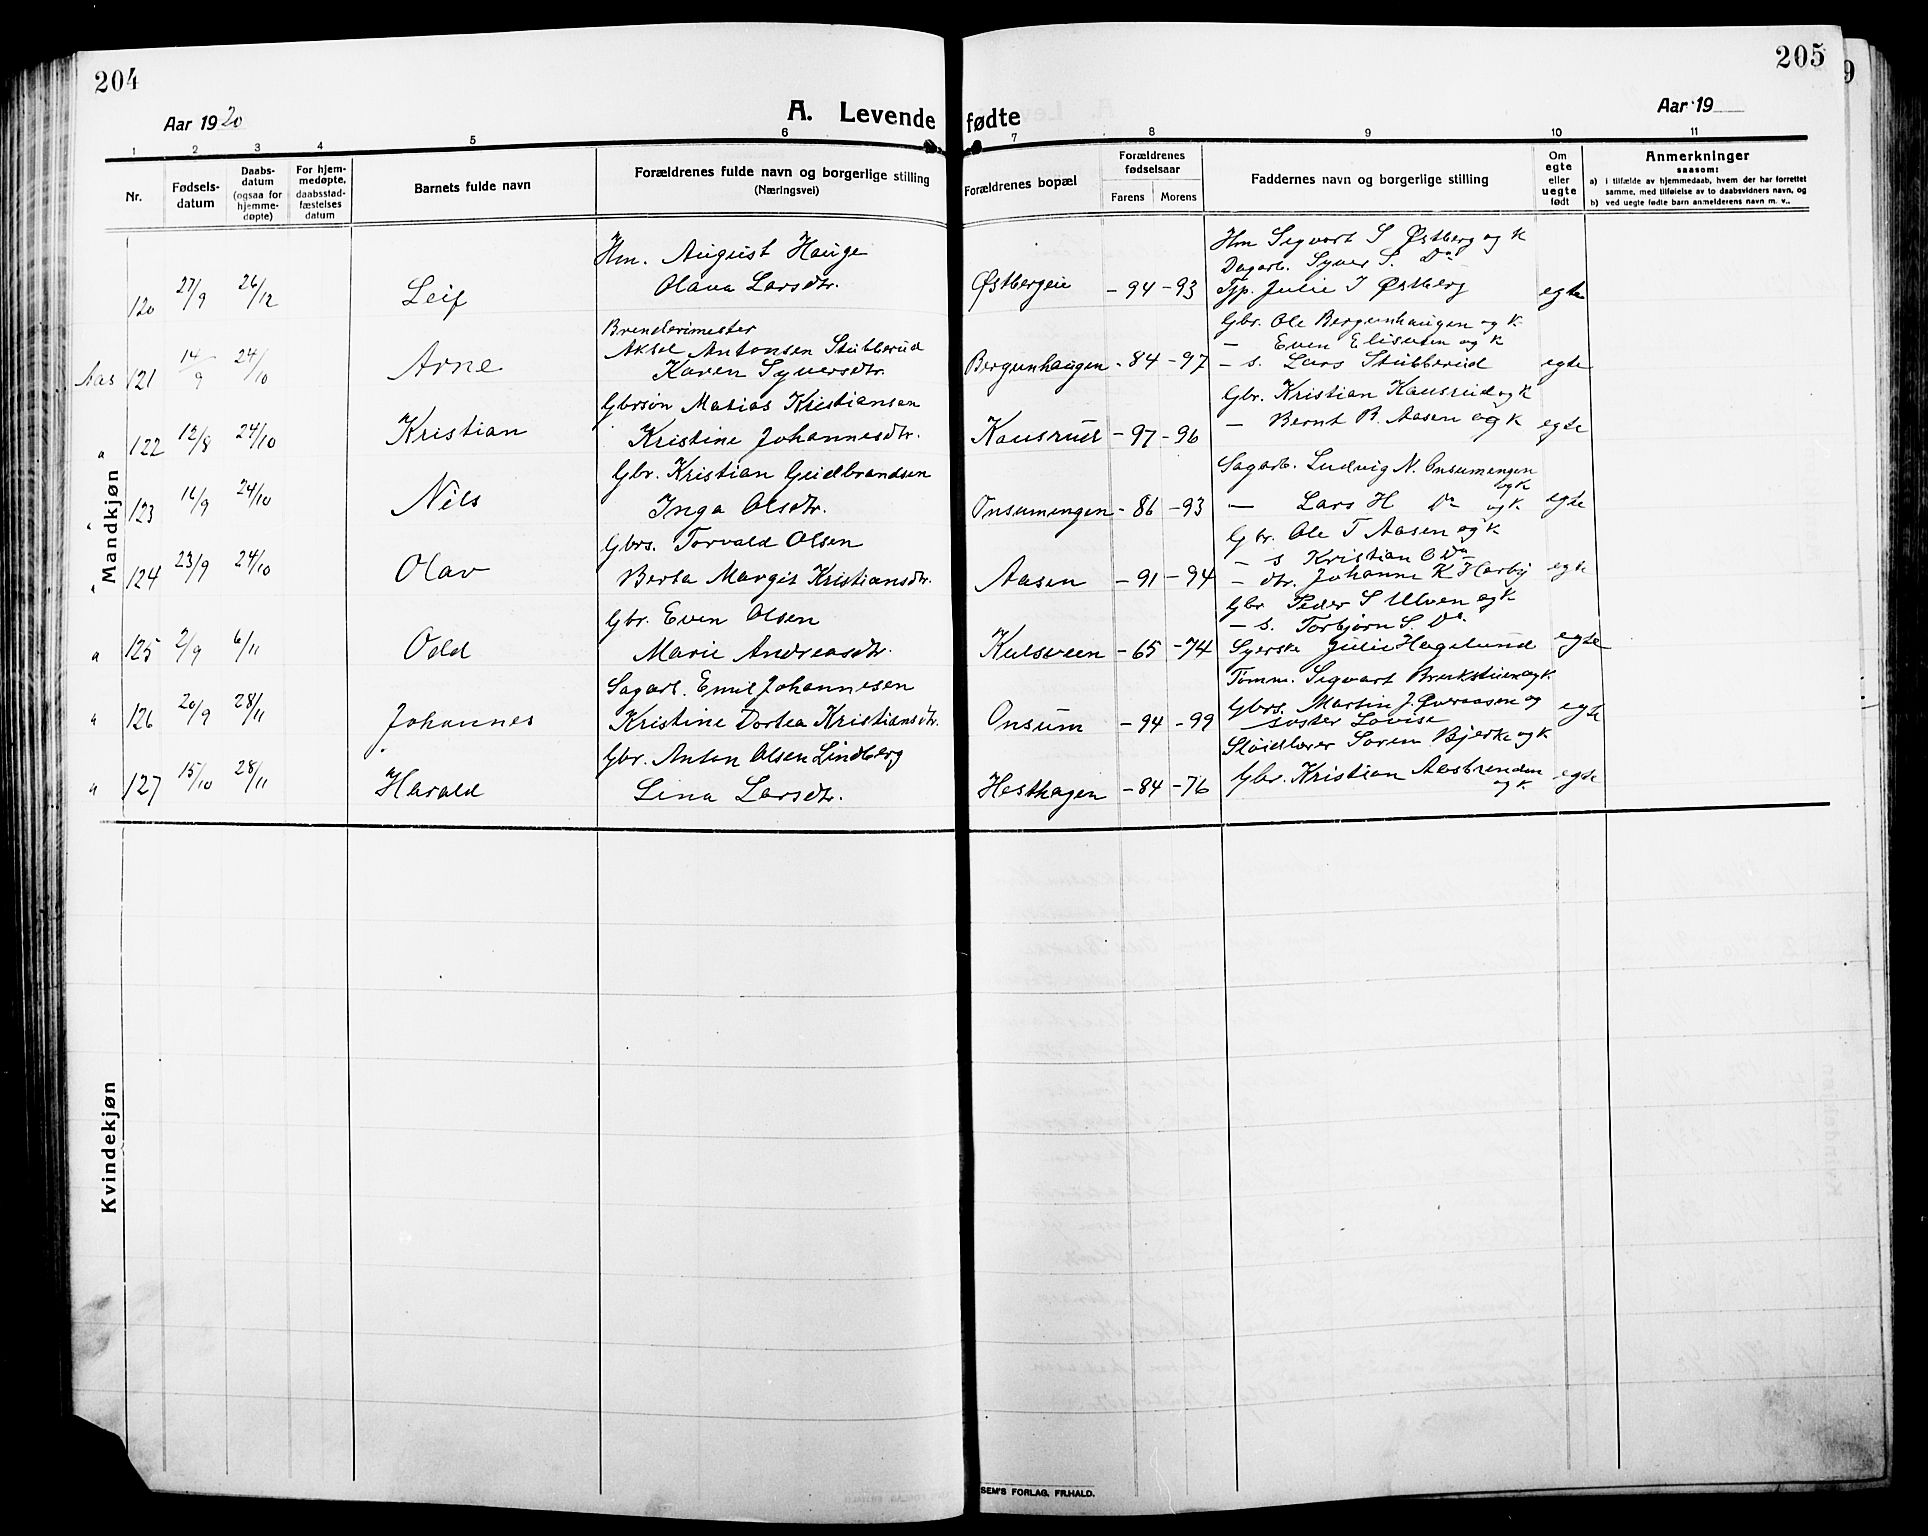 204
205
Aar 1920
A. Levende fødte
Aar 19
1 2 3 4 5 6 7 8 9 10 11
Nr.
Fødsels-
datum
Daabs-
datum
(ogsaa for
hjemme-
døpte)
For hjem-
medøpte,
daabsstad-
fæstelses
datum
Barnets fulde navn
Forældrenes fulde navn og borgerlige stilling
(Næringsvei)
Forældrenes bopæl
Forældrenes
fødselsaar
Farens
Morens
Faddernes navn og borgerlige stilling
Om
egte
eller
uegte
født
Anmerkninger
saasom:
a) i tilfælde av hjemmedaab, hvem der har forrettet
samme, med tilføielse av to daabsvidners navn, og
b) ved uegte fødte barn anmelderens navn m. v..
Mandkjøn
Hm. August Hauge
Hm Sigvart S Østberg og K
Dagarb. Syver S. Do
120 27/9 26/12 Leif Olava Larsdtr. Østbergeie -94 -93 Tjp. Julie I Østberg egte
Brenderimester
Gbr. Ole Bergunhaugen og K.
Aksel Antonsen Stubberud
— Even Eliseuten og K
Aas 121 14/9 24/10 Arne Karen Syversdtr. Bergunhaugen -84 -97 — s. Lars Stubberud egte
Gbrsøn Matias Kristiansen
Gbr. Kristian Kausrud og K
" 122 12/8 24/10 Kristian Kristine Johannesdtr. Kausrud -97 -96 — Bernt B. Aasen og K egte
Gbr. Kristian Guldbrandsen
Sagarb. Ludvig N. Onsumengen
og K
" 123 11/9 24/10 Nils Inga Olsdtr. Onsumengen -86 -93 — Lars H Do og K. egte
Gbrs. Torvald Olsen
Gbr. Ole T Aasen og K
— s Kristian O Do
" 124 23/9 24/10 Olav Berta Margit Kristiansdtr. Aasen -91 -94 — dtr. Johanne K Harby egte
Gbr. Even Olsen
Gbr Peder S Ulven og K
— s. Torbjørn S. Do.
" 125 2/9 6/11 Odd Marie Andreasdtr. Kulsveen -65 -74 Syerske Julie Hagelund egte
Sagarb. Emil Johannesen
Tømm. Sigvart Brukstuen og K
Gbrs. Martin J. Øveraasen og
" 126 20/9 28/11 Johannes Kristine Dortea Kristiansdtr. Onsum -94 -99 søster Lovise egte
Gbr. Anton Olsen Lindberg
Sløidlærer Søren Bjerke og K
" 127 15/10 28/11 Harald Lina Larsdtr. Hesthagen -84 -76 Gbr. Kristian Aasbrenden egte
og K.
Kvindekjøn
SEM'S FORLAG, FR.HALD.